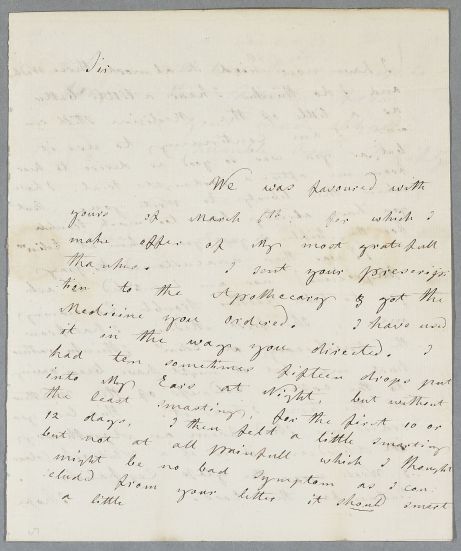 Sir
We was favoured with
yours of March 6th, for which I
make offer of My most gratefull
thankes. I sent your prescrip
tion to the Apothecary & got the
Medicine you ordered. I have used
it in the way you directed. I
had ten sometimes fifteen drops put
into My Ears at Night, but without
the least smarting, for the first 10 or
12 days, I then felt a little smarting
but not at all painfull which I thought
might be no bad symptom as I con
cluded from your letter it should smart
a little